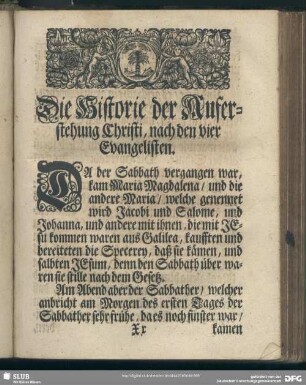 Die Historie der Aufer-
stehung Christi, nach den vier
Evangelisten.
DA der Sabbath vergangen war,
kam Maria Magdalena/ und die
andere Maria/ welche genennet
wird Jacobi und Salome, und
Johanna, und andere mit ihnen, die mit JE-
su kommen waren aus Galilea, kaufften und
bereiteten die Specerey, daß sie kämen, und
salbten JEsum, denn den Sabbath über wa-
ren sie stille nach dem Gesetz.
Am Abend aber der Sabbather/ welcher
anbricht am Morgen des ersten Tages der
Sabbather sehr frühe, da es noch finster war/
Xx kamen
SLUB
Wir führen Wissen.
gefördert von der
Deutschen Forschungsgemeinschaft
DFG